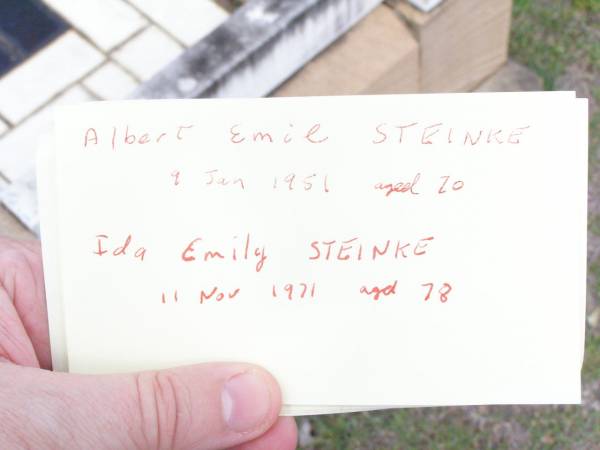 Albert Emil STEINKE
9 Jan 1951 aged 70
Ida Emily STEINKE
11 Nov 1971 aged 78